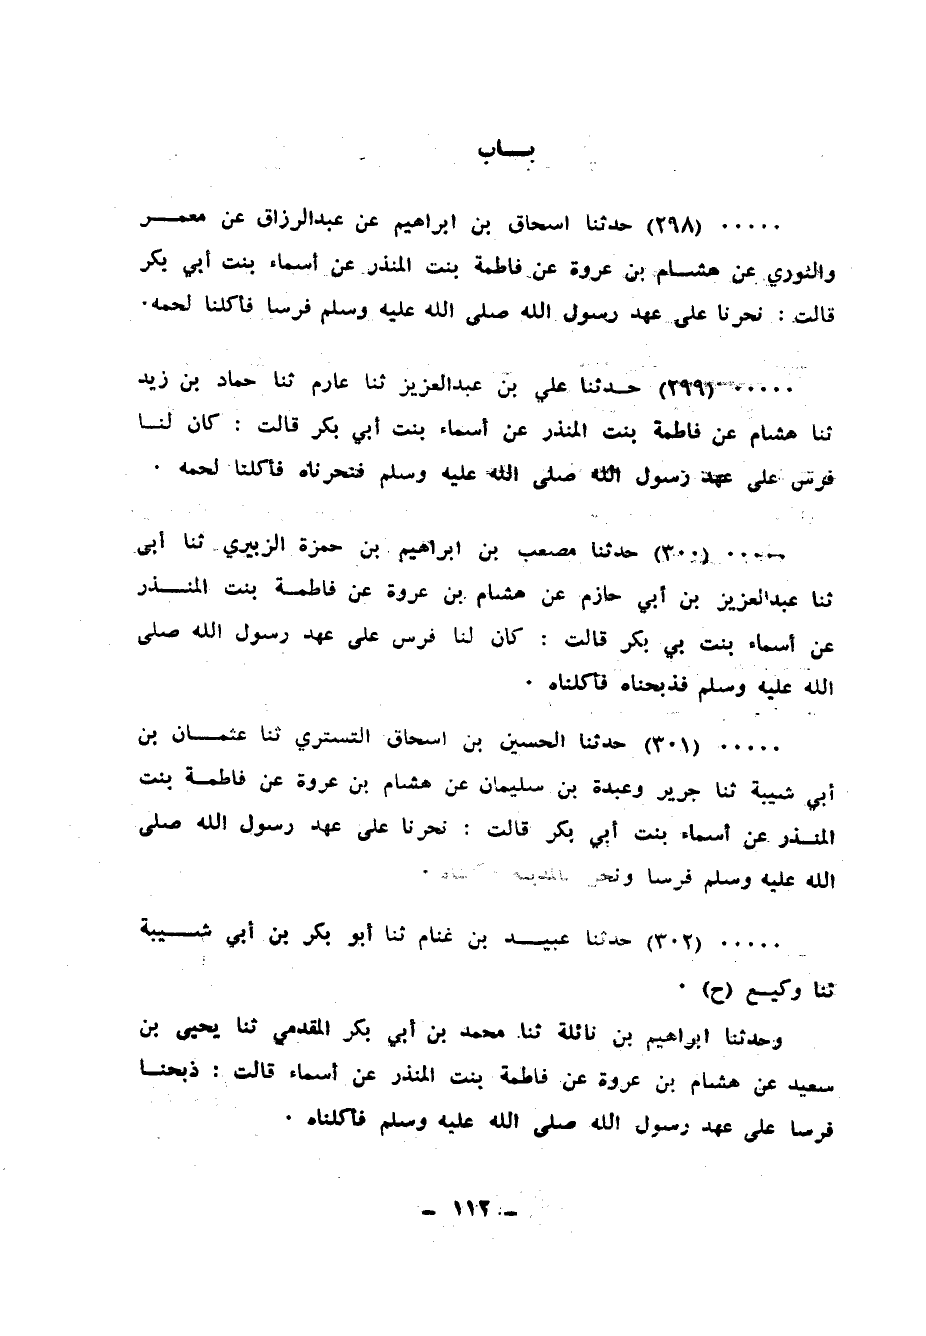 بـــاب
٠٠٠٠٠ (٢٩٨) حدثنا اسحاق بن ابراهيم عن عبدالرزاق عن معمـــر
والثوري عن هشـــام بن عروة عن فاطمة بنت المنذر عن أسماء بنت أبي بكر
قالت : نحرنا على عهد رسول الله صلى الله عليه وسلم فرسا فأكلنا لحمه٠
٠٠٠٠٠ (٢٩٩) حـدثنا علي بن عبدالعزيز ثنا عارم ثنا حماد بن زيد
ثنا هشام عن فاطمة بنت المنذر عن أسماء بنت أبي بكر قالت : كان لنـــا
فرس على عهد رسول الله صلى الله عليه وسلم فنحرناه فأكلنا لحمه ٠
٠٠٠٠٠ (٣٠٠) حدثنا مصعب بن ابراهيم بن حمزة الزبيري ثنا أبي
ثنا عبدالعزيز بن أبي حازم عن هشام بن عروة عن فاطمـــة بنت المنـــذر
عن أسماء بنت بي بكر قالت : كان لنا فرس على عهد رسول الله صلى
الله عليه وسلم فذبحناه فأكلناه ٠
٠٠٠٠٠ (٣٠١) حدثنا الحسين بن اسحاق التستري ثنا عثمـــان بن
أبي شيبة ثنا جرير وعبدة بن سليمان عن هشام بن عروة عن فاطمـــة بنت
المنـــذر عن أسماء بنت أبي بكر قالت : نحرنا على عهد رسول الله صلى
الله عليه وسلم فرسا ونحن ٠
٠٠٠٠٠ (٣٠٢) حدثنا عبيـــد بن غنام ثنا أبو بكر بن أبي شـــيبة
ثنا وكيـــع (ح) ٠
وحدثنا ابراهيم بن نائلة ثنا محمد بن أبي بكر المقدمي ثنا يحيى بن
سعيد عن هشام بن عروة عن فاطمة بنت المنذر عن أسماء قالت : ذبحنـــا
فرسا على عهد رسول الله صلى الله عليه وسلم فأكلناه ٠
- ١١٢ -